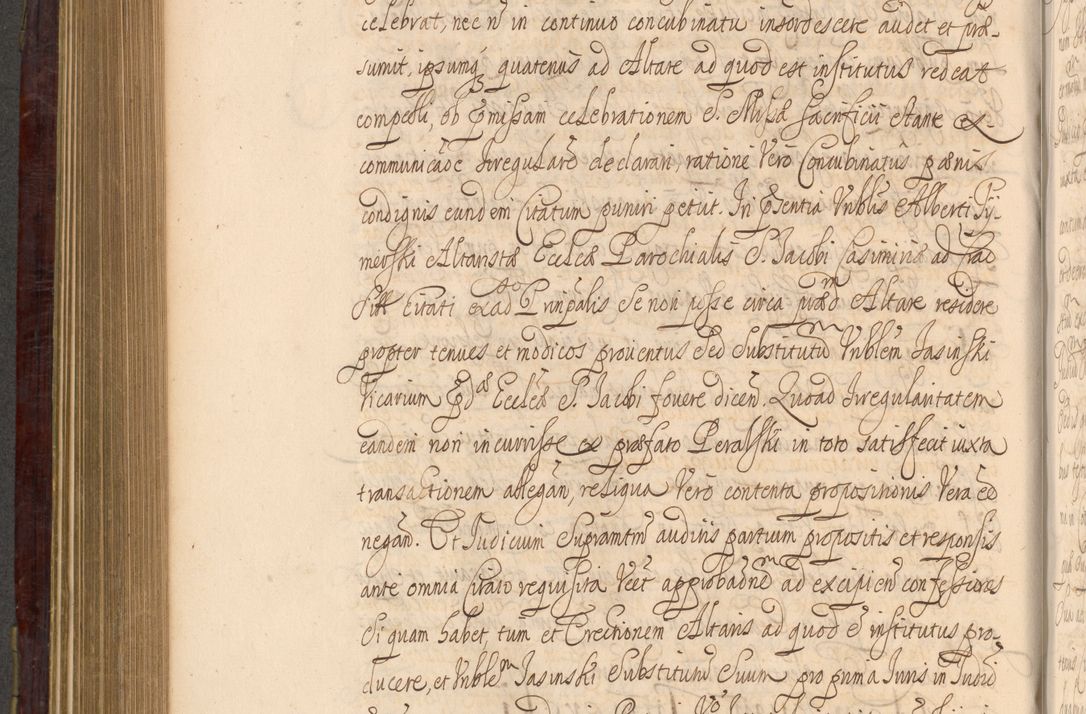 celebrat, nec ñ in continuo concubinatu insordescere audet et præ-
sumit, ipsumq́ quatenus ad Altare ad quod est institutus redeat
compelli, ob omissam celebrationem S. Missæ Sacrificii stante ex
communicãoe Irregularẽ declarari, ratione Verò Concubinatus pœnis
condignis eundem Citatum puniri petiit. In p̃sentia Vnblis Alberti
merski Altaristæ Ecclæ Parochialis S. Jacobi Casimiriæ ad
citati Principalis Se non posse circa Altare residere
propter tenues et modicos prouentus Sed Substitutũ Vnblem Jasinski
Vicarium p̃dæ Ecclæ S. Jacobi fouere dicen̄. Quoad Irregularitatem
eandem non incurrisse ex præfato Peralski in toto satisfecit iuxta
transactionem allegan̄, reliqua Verò contenta propositionis Vera eẽ
negan̄. Et Judicium Supramtm̄ auditis partium propositis et responsis
ante omnia Citato requisita Vt approbaõnem ad excipien̄ confessiones
Si quam habet, tum et Erectionem Altaris ad quod ẽ institutus pro-
ducere, et Vnblem Jasinski Substitutum Suum pro prima Juris in Judiõ